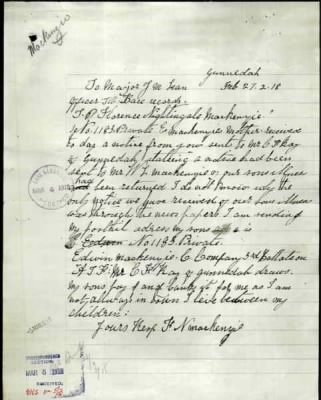 Mackenzie
Gunnedah
Feb 27. 2. 18
To Major J M Lean
Officer I/c Base records.
I. P Florence Nightingale Mackenzie
No 1183 Private E Mackenzie Mother received
to day a notice from you sent to Mr C F Kay
of Gunnedah stating a notice had been
sent to Mr W J Mackenzie or our sons
has been returned I do not know why the
only notice we have received of our
was through the news papers I am sending
my postall adress my sons is
Edwin No 1183. Private.
Edwin Mackenzie. C Company 3rd Battalion
A I F. Mr C F Kay of Gunnedah draws
my sons pay and banks it for me as I am
not allways in town I live between my
children:
Yours Resp F N Mackenzie
MAR 6 1918
MAR 6 1918
RECEIVED